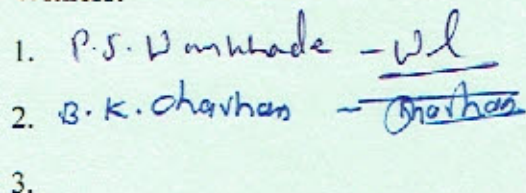 1. P.S. Wankhade -
2. B.K. Chavhan - Chavhan
3.